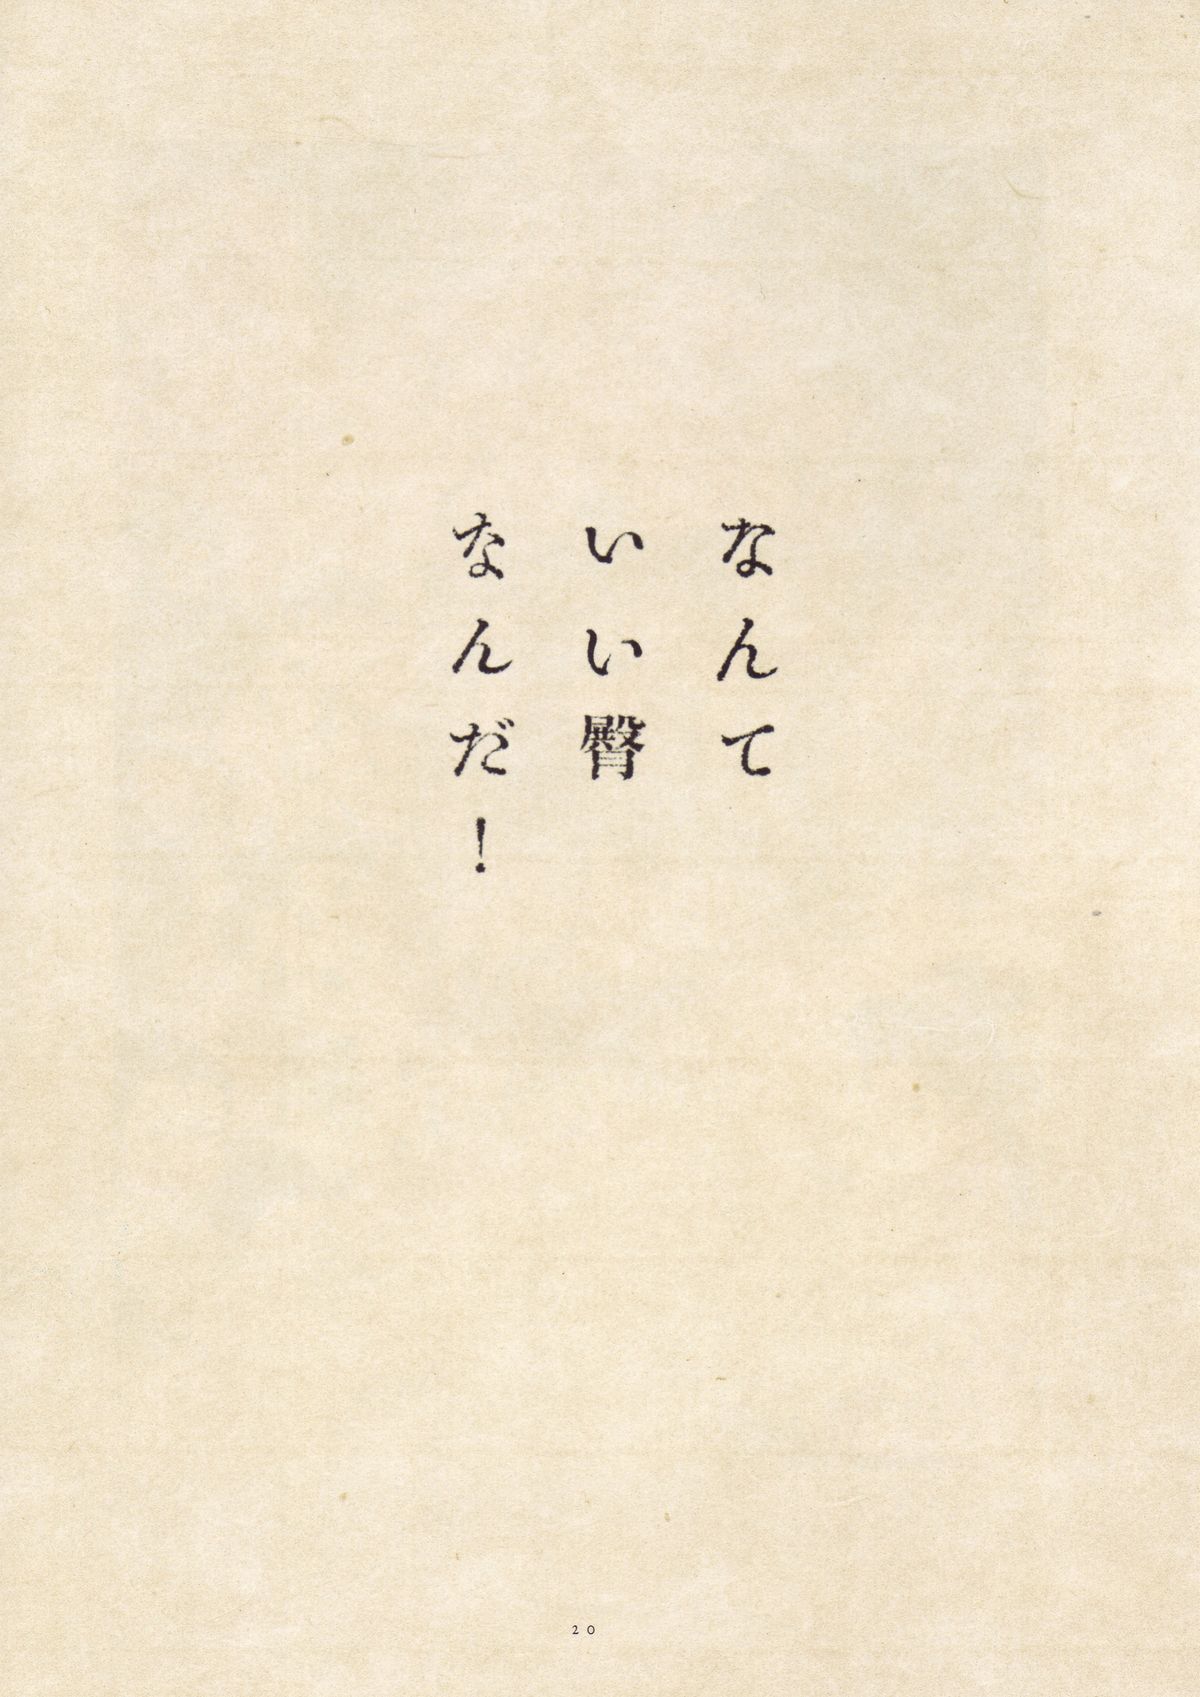 なんて
いい臀
なんだ！
20